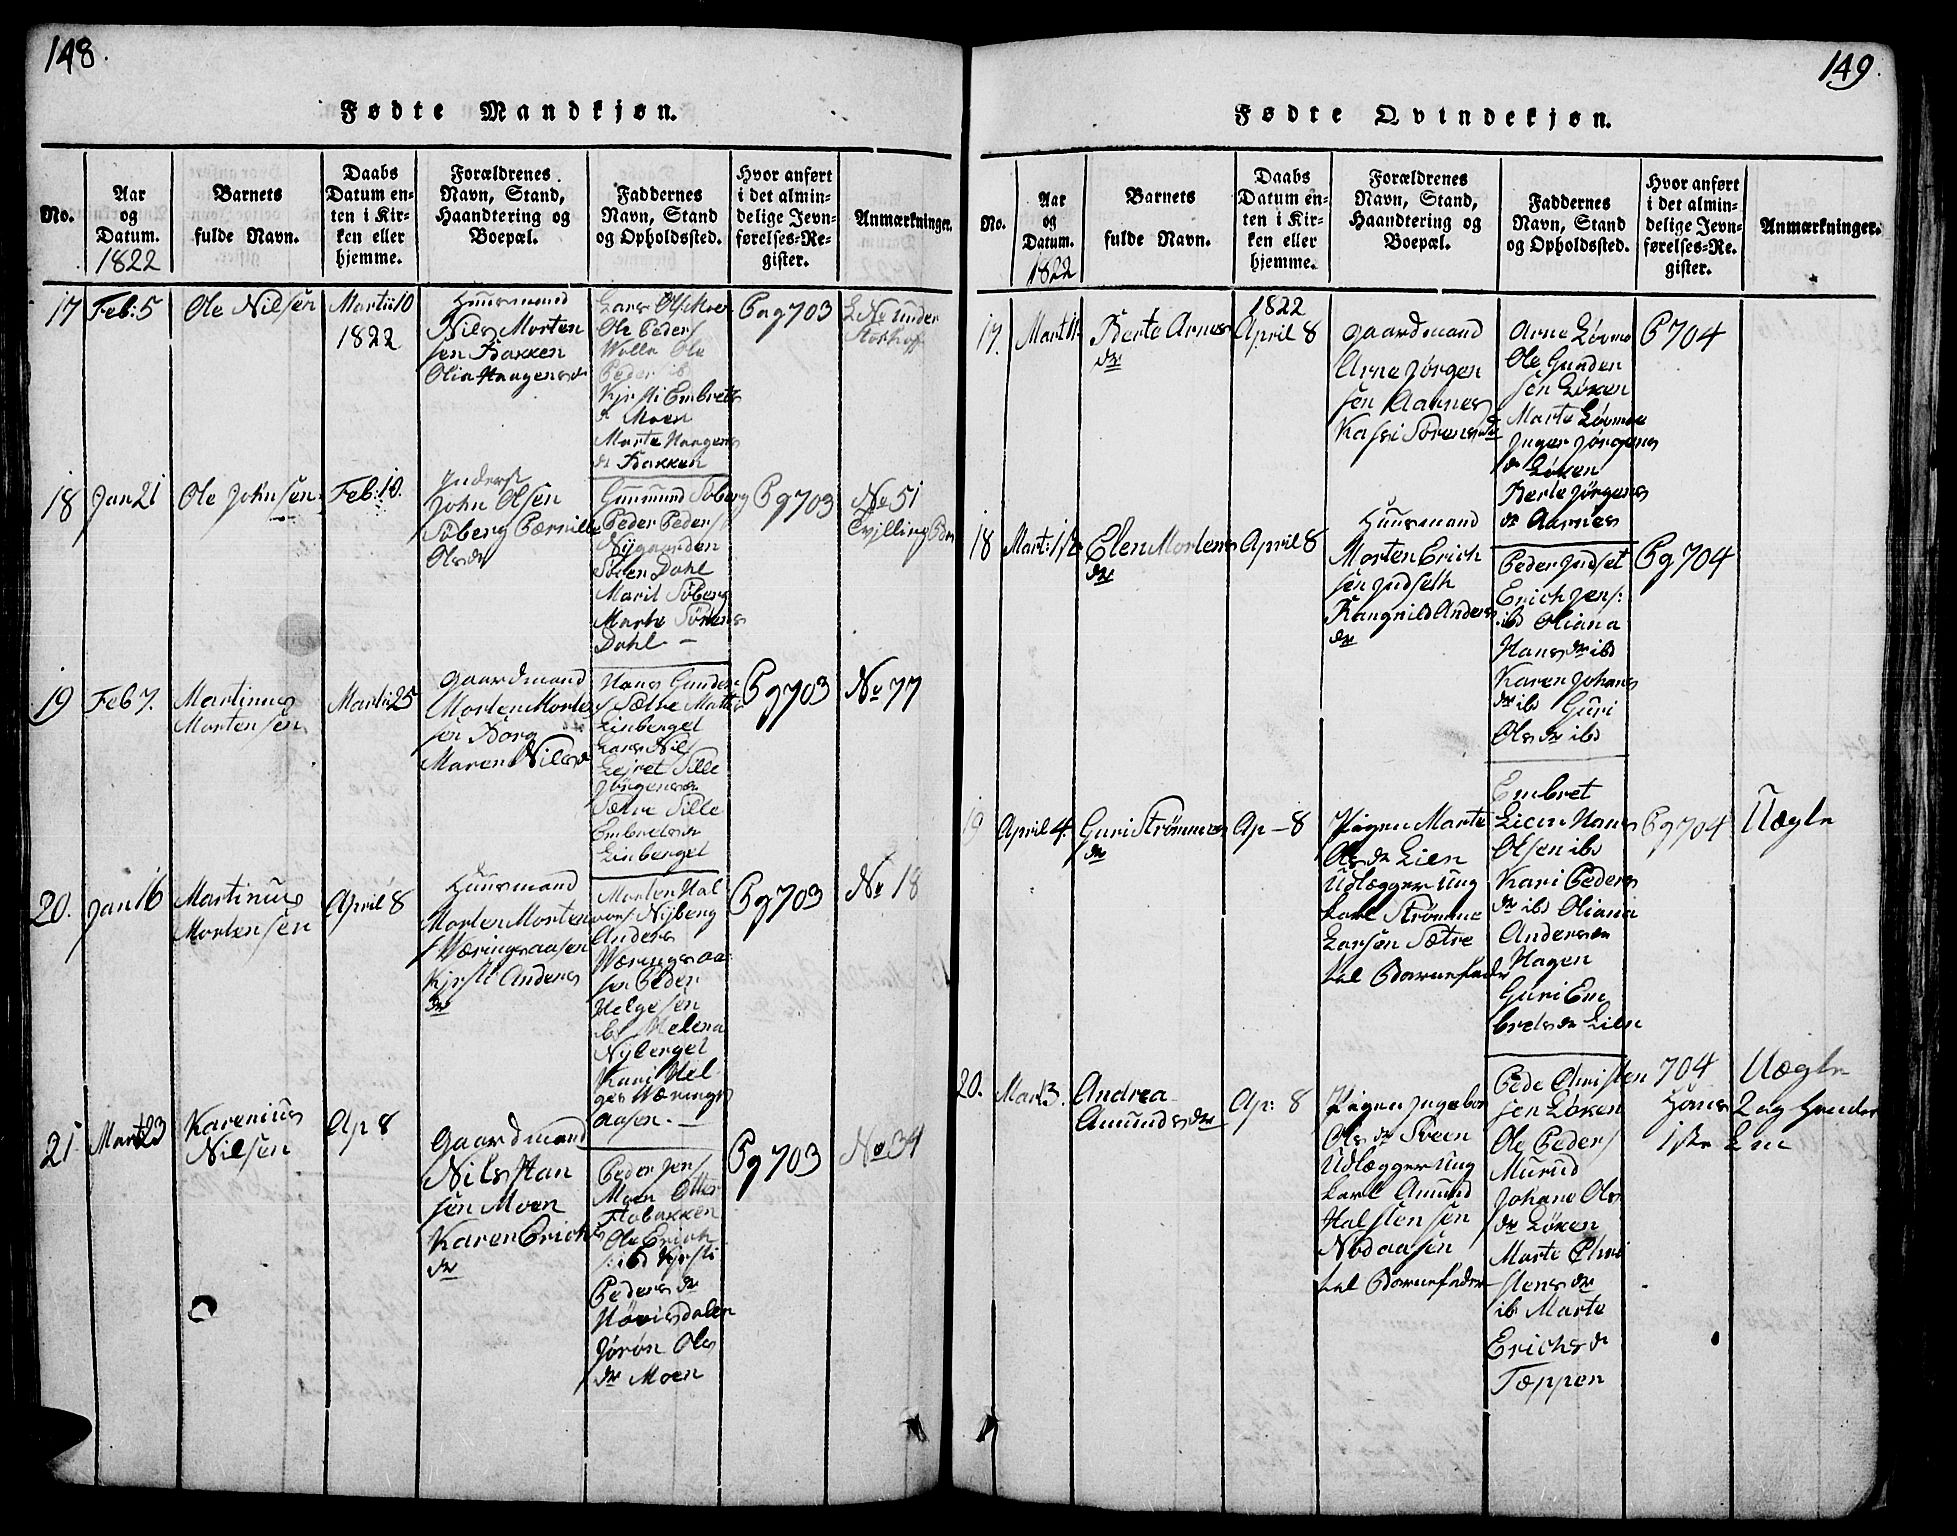 148.
Fødte Mandkjøn.
No.
Aar
og
Datum.
1822
Barnets
fulde Navn.
Daabs
Datum en-
ten i Kir-
ken eller
hjemme.
Forældrenes
Navn, Stand,
Haandtering og
Boepæl.
Faddernes
Navn, Stand
og Opholdssted.
Hvor anført
i det almin-
delige Jevn-
førelses-Re-
gister.
Anmærkninger.
17
Feb: 5
Ole Nilsen
Martii 10
1822
Huusmand
Nils Morten
sen Bakken
Olia Haagensdr
Lars Ols Moe
Ole Peders
Wolla Ole
Peders ib
Kjersti Embrets
dr Moen
Marte Haagens
dr Bakken
Pag 703
No under
18
Jan 21
Ole Johnsen
Feb: 10.
Inderst
John Olsen
Söberg Pærnille
Olsdr
Gunmund Söberg
Peder Peders
Nygaarden
Sören Dahl
Marit Söberg
Marte Sörens
Dahl —
Pg 703
No 51
Tvilling Børn
19
Feb 7.
Martinus
Mortensen
Martii 25
Gaardmand
Morten Morten
sen Borg
Maren Nilsdr
Hans Gunders
Sætre Matt
Linberget
Lars Nils
Lejret Sille
Jörgensdr
Sætre Sille
Embretsdr
Linberget
Pg 703
No 77
20.
Jan 16
Martinus
Mortensen
April 8
Huusmand
Morten Morten
s Wæringsaasen
Kjersti Anders
dr
Morten Hal
vors Nyberg
Anders
Wæringsaa
sen Peder
Helgesen
ib Helena
Nyberget
Kari Hel
ges Wærings
aasen. —
Pg 703
No 18
21
Mart 23
Karenius
Nilsen
Ap 8
Gaardmand
Nils Han
sen Moen
Karen Erichs
dr
Peder Jens
Moen Otter
Flobakken
Ole Erich
s: ibd Kjersti
Peders dr
Hovisdalen
Jörön Ols
dr Moen
Pg 703
No 34
149.
Fødte Qvindekjøn.
No.
Aar
og
Datum.
1822
Barnets
fulde Navn.
Daabs
Datum en-
ten i Kir-
ken eller
hjemme.
Forældrenes
Navn, Stand,
Haandtering og
Boepæl.
Faddernes
Navn, Stand
og Opholdssted.
Hvor anført
i det almin-
delige Jevn-
førelses-Re-
gister.
Anmærkninger.
17.
Mart 11
Berte Arnes
dr
1822
April 8
Gaardmand
Arne Jörgen
sen Aarnes
Kasri Sörensdr
Arne Lövmo
Ole Gunden
sen Löken
Marte Lövmoe
Inger Jörgens
dr Löken
Berte Jörgens
dr Aarnes
P 704
18
Mart: 1ste
Elen Mortens
dr
April 8
Huusmand
Morten Erich
sen Indseth
Rangnild Anders
dr
Peder Indset
Erich Jens:
ibd Oliana
Hansdr ibd
Karen Johans
dr ibd Guri
Olsdr ibd
Pg 704
19
April 4.
Guri Strömmes
dr
Ap — 8
Pigen Marte
Olsdr Lien
Udlægger Ung
karl Strömme
Larsen Sætre
til Barnefader
Embret
Lien Hans
Olsen ibd
Kari Peders
dr ibd Oliana
Andersdr
Hagen
Guri Em
bretsdr Lien
Pg 704
Uægte
20.
Mart 3.
Andrea
Amundsdr
Ap: 8
Pigen Ingebor
Olsdr Sveen
Udlægger Ung
karl Amund
Halstensen
Nodaasen
til Barnefader
Pede Christen
sen Löken
Ole Peders
Murud
Johane Ols
dr Löken
Marte Chri
stensdr
ib Marte
Erichsdr
Tæppen
704
Uægte
Hans 2 og Hendes
1ste Lei